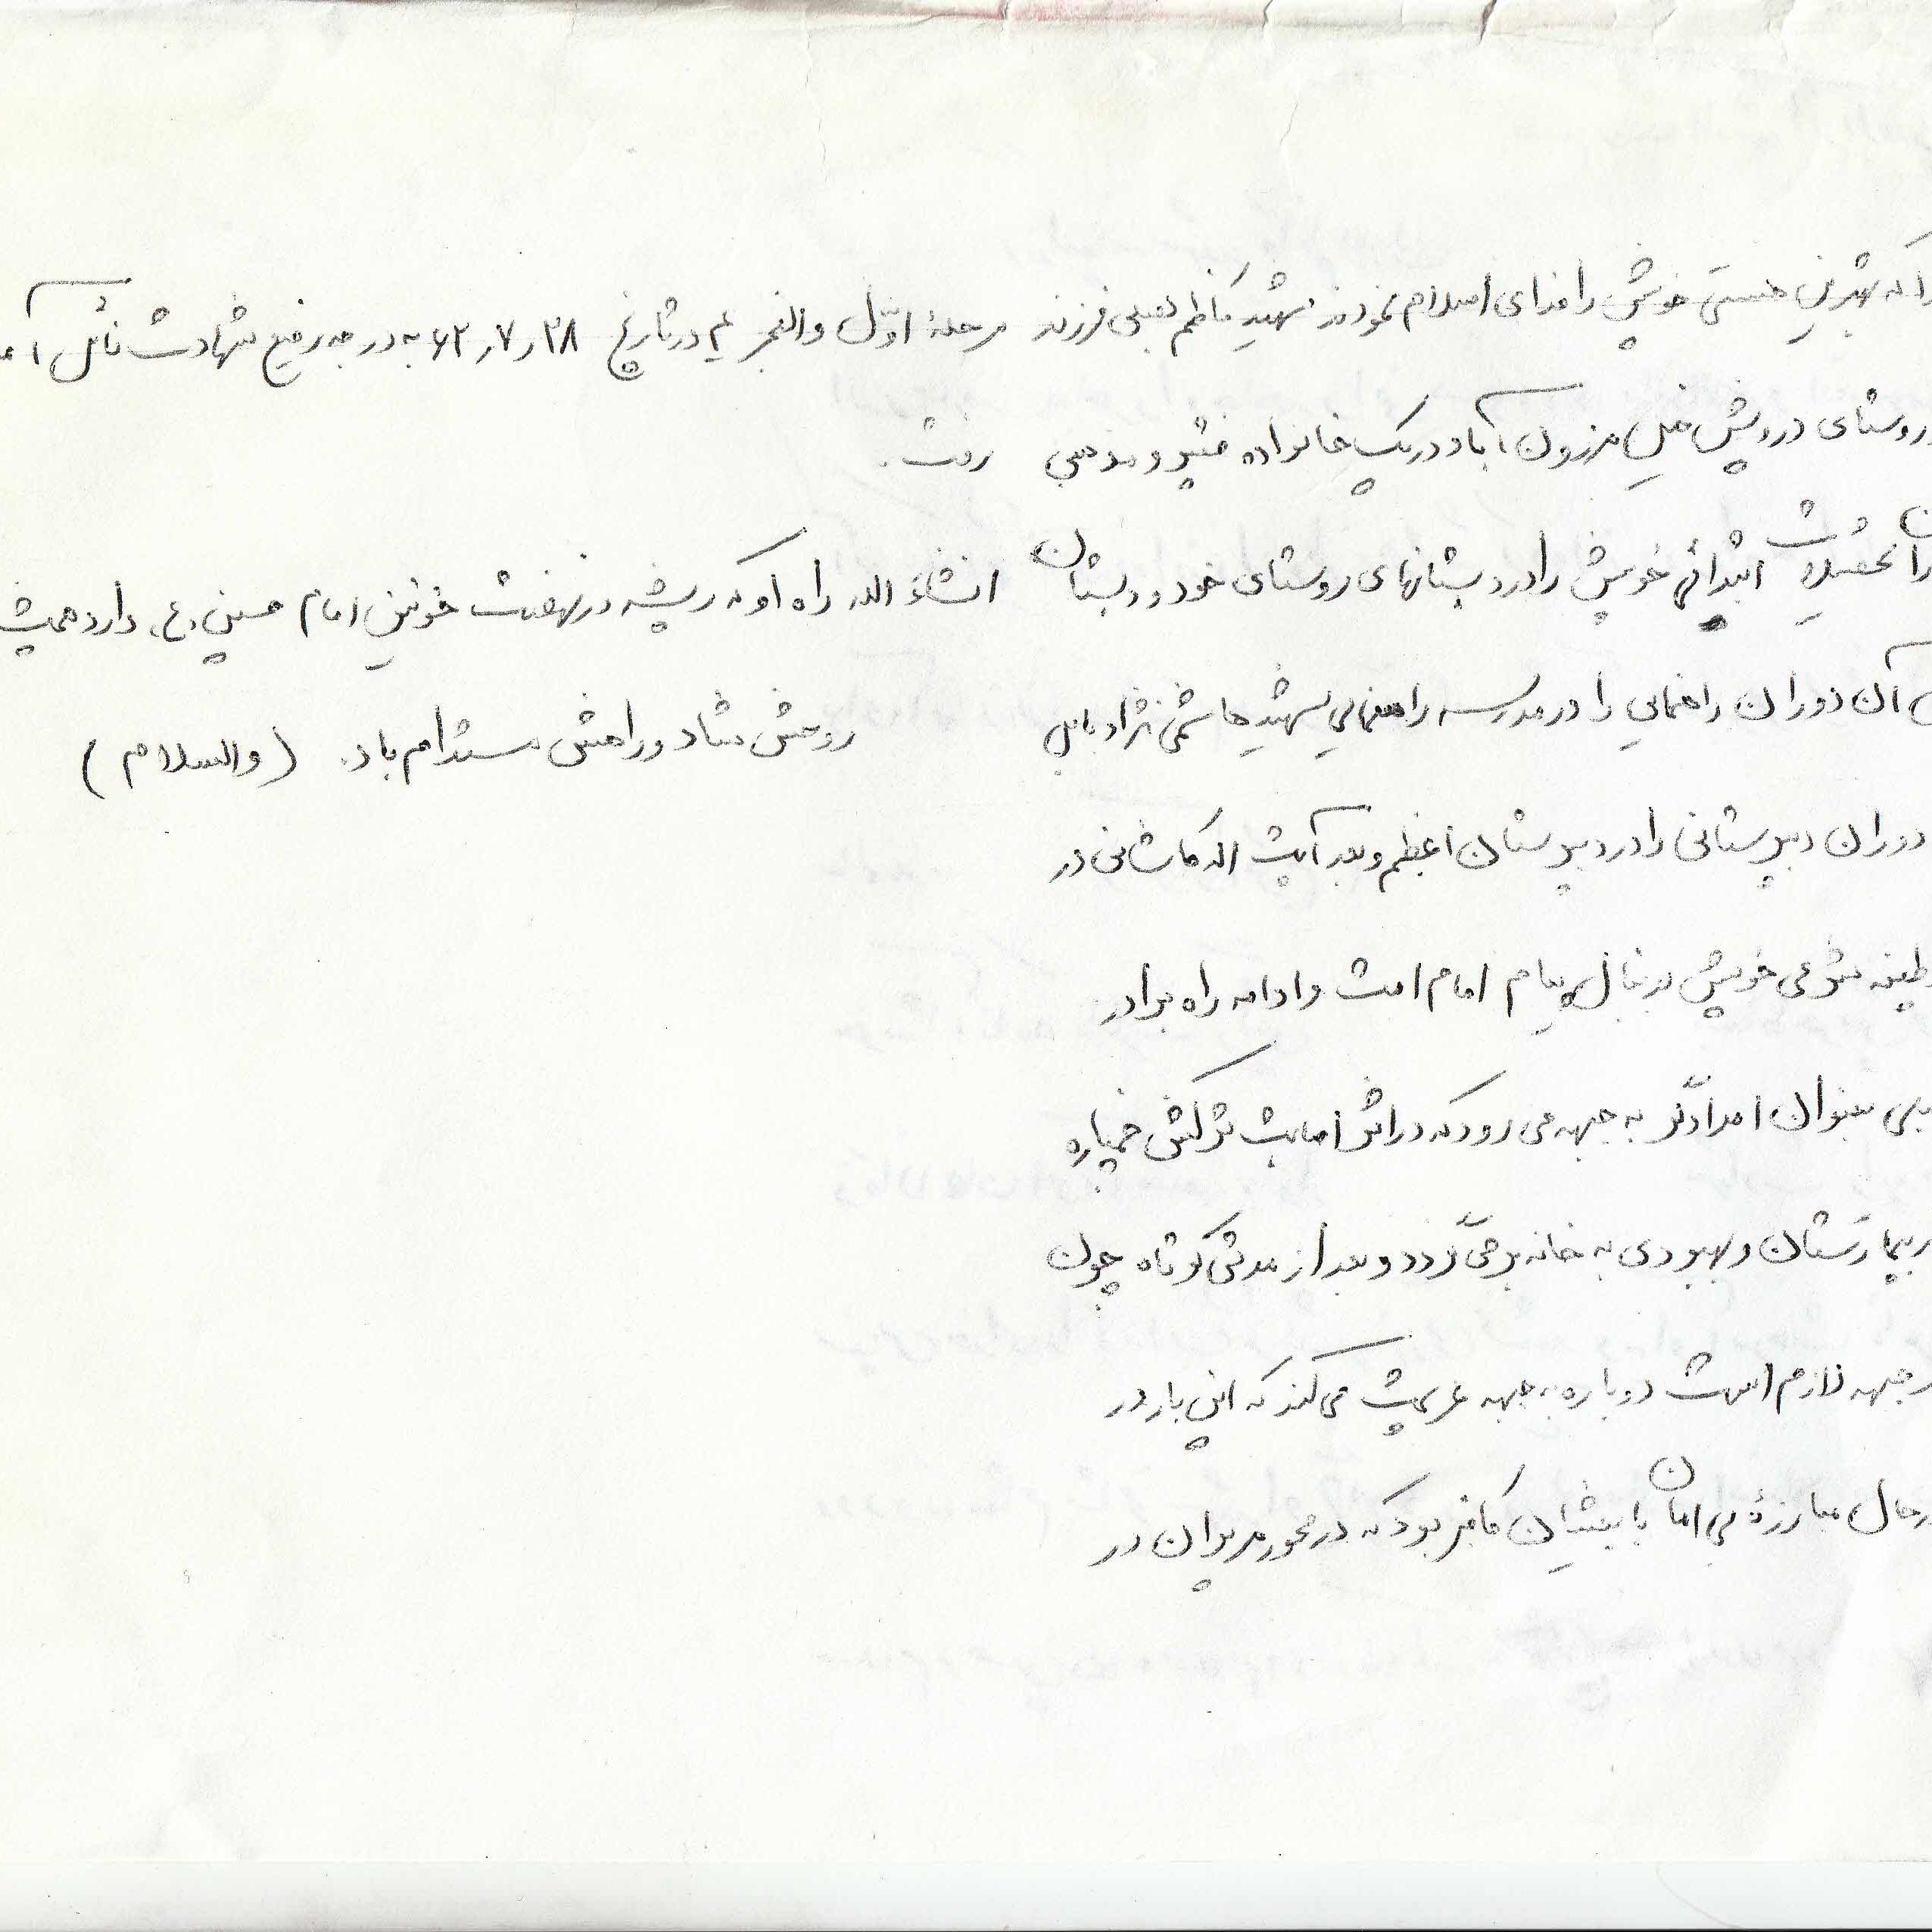 را که بهترین هستی خویش را فدای اسلام نمودند شهید کاظم فرزند
روستای درویش خیل مرزون آباد در یک خانواده فقیر و مذهبی
را تحصیلات ابتدائی خویش را در دبستانهای روستای خود و دبستان
آن دوران راهنمایی را در مدرسه راهنمایی شهید هاشمی نژاد بابل
دوران دبیرستانی را در دبیرستان اعظم و بعد آیت اله کاشانی در
وظیفه شرعی خویش بدنبال پیام امام امت و ادامه راه برادر
بعنوان امدادگر به جبهه می رود که در اثر اصابت ترکش خمپاره
بیمارستان و بهبودی به خانه برمی گردد و بعد از مدتی کوتاه چون
جبهه لازم است دوباره به جبهه عزیمت می کند که این بار در
در حال مبارزهٔ بی امان با بعثیان کافر بود که در محور مریوان در
مرحلهٔ اوّل والفجر ۴ در تاریخ ۲۸ر۷ر۶۲ به درجه رفیع شهادت نائل آمد
رفت.
انشاء الله راه او که ریشه در نهضت خونین امام حسین «ع» دارد همیشه
روحش شاد و راهش مستدام باد. (والسلام)